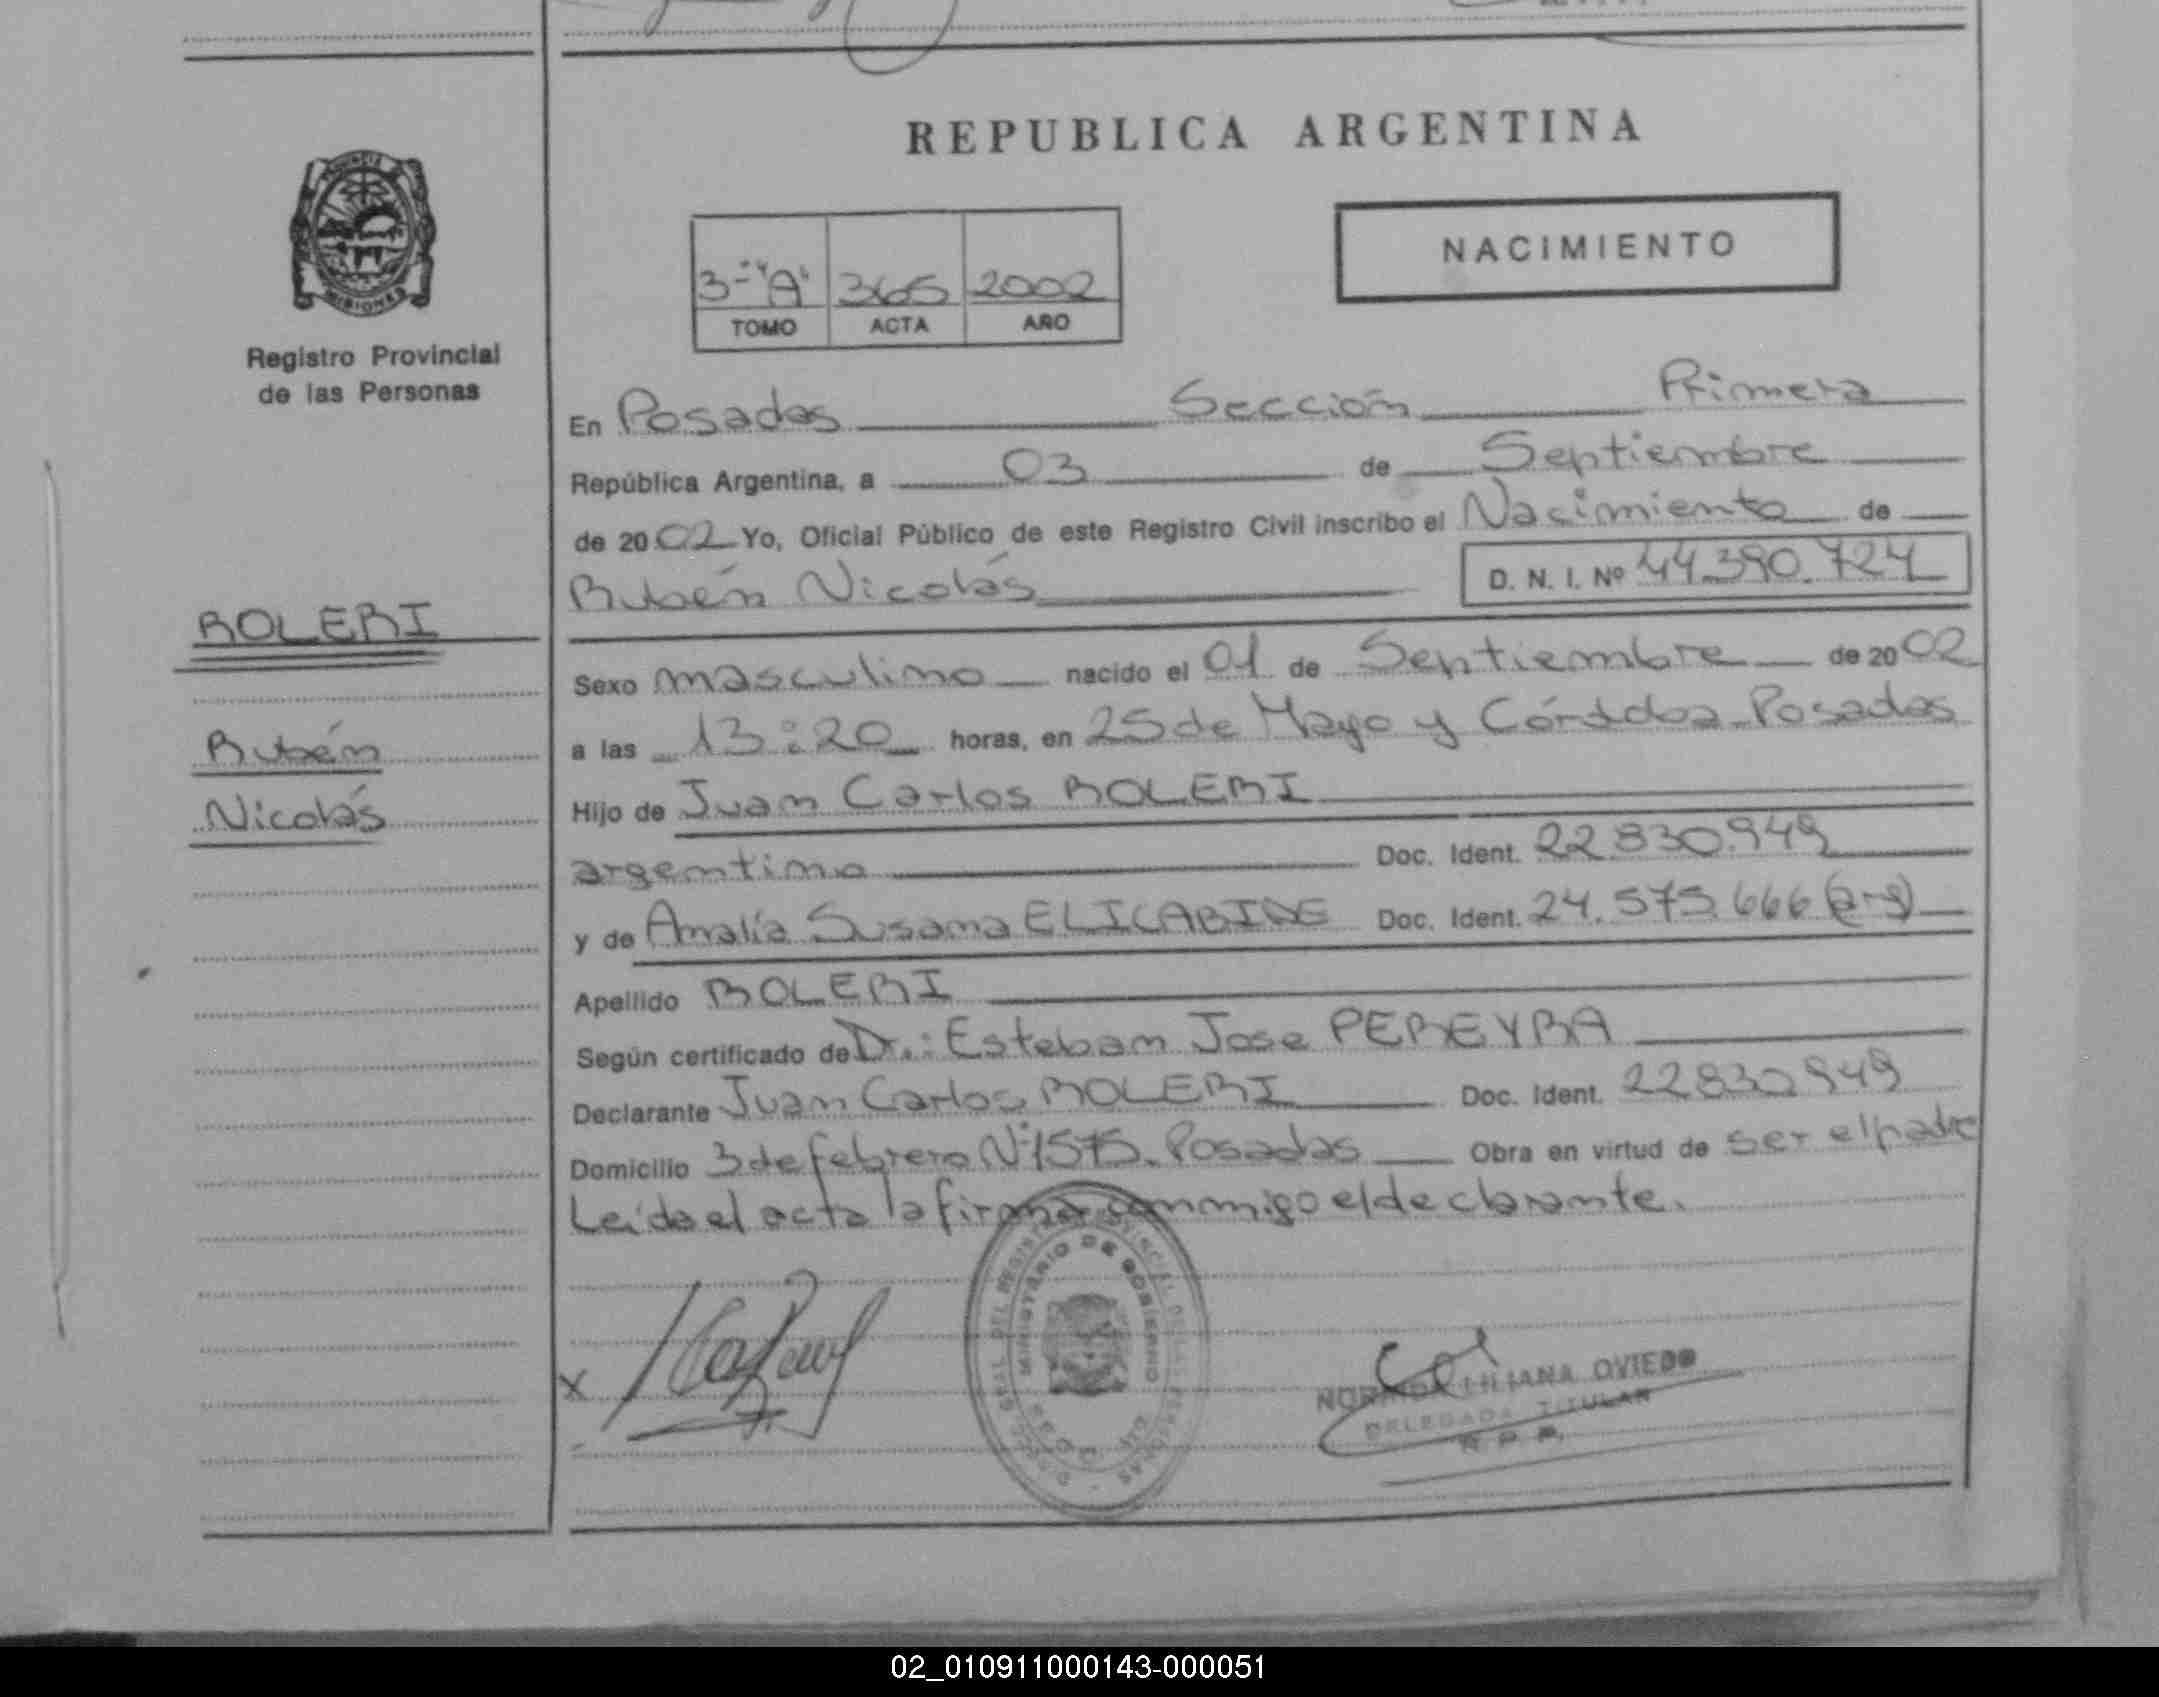 REPUBLICA ARGENTINA
PROVINCIA
MISIONES
Registro Provincial
de las Personas
3-"A" 365 2002
TOMO ACTA AÑO
NACIMIENTO
En Posadas Sección Primera
República Argentina, a 03 de Septiembre
de 2002 Yo, Oficial Público de este Registro Civil inscribo el Nacimiento de
Rubén Nicolás D. N. I. Nº 44.390.724
ROLERI
Rubén
Nicolás
Sexo masculino nacido el 01 de Septiembre de 2002
a las 13:20 horas, en 25 de Mayo y Córdoba-Posadas
Hijo de Juan Carlos ROLERI
argentino Doc. Ident. 22.830.949
y de Amalia Susana ELICABIDE Doc. Ident. 24.575.666 (arg)
Apellido ROLERI
Según certificado de Dr.: Esteban Jose PEREYRA
Declarante Juan Carlos ROLERI Doc. Ident. 22830949
Domicilio 3 de febrero Nº1575. Posadas Obra en virtud de ser el padre
Leída el acta la firma conmigo el declarante.
MINISTERIO DE GOBIERNO
X
NORMA LILIANA OVIEDO
DELEGADA TITULAR
R. P. P.
02_010911000143-000051